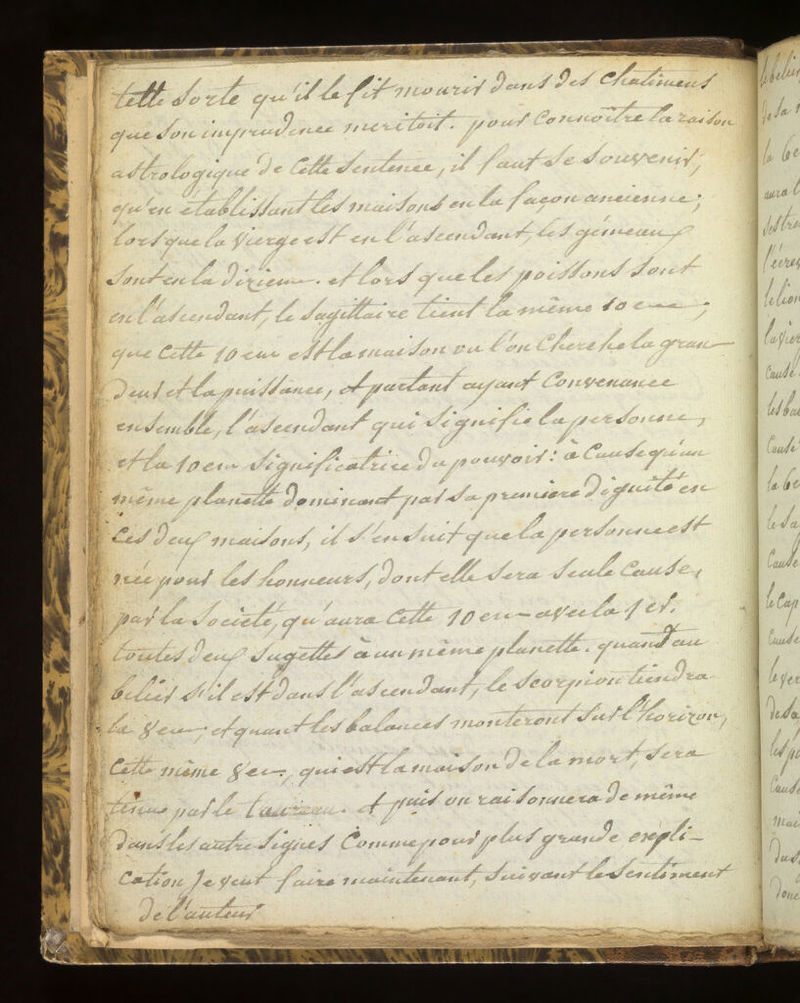 telle sorte qu'il le fit mourir dans des chatimens
que son imprudence meritoit. pour connoitre la raison
astrologique de cette sentence, il faut se souvenir,
qu'en établissant les maisons en la façon ancienne;
lorsque la Vierge est en l'ascendant, les gémeaux
sont en la dixieme. et lors que les poissons sont
en l'ascendant, le sagittaire tient la même 10eme;
que cette 10eme est la maison ou l'on cherche la gran-
deur et la puissance, et partant ayant convenance
ensemble, l'ascendant qui signifie la personne,
et la 10eme significatrice du pouvoir: à cause qu'un
même planette dominant par sa premiere dignité en
ces deux maisons, il s'en suit que la personne est
née pour les honneurs, dont elle sera seule cause,
par la societé, qu'aura cette 10eme avec la 1er.
toutes deux sugettes à un même planette. quand au
belier s'il est dans l'ascendant, le scorpion tiendra
la 8eme; et quant les balances monteront sur l'horizon,
cette même 8eme, qui est la maison de la mort, sera
tenue par le taureau. et puis on raisonnera de même
dans les autre signes comme pour plus grande expli-
cation je veut faire maintenant, suivant le sentiment
de l'auteur
belier
de sa
la 6e
aura l
l'écrev
le lion
la vier
cause
les bal
cause
la 6e
le sa
cause
le cap
cause
le ver
de sa
les po
cause
mai
donc